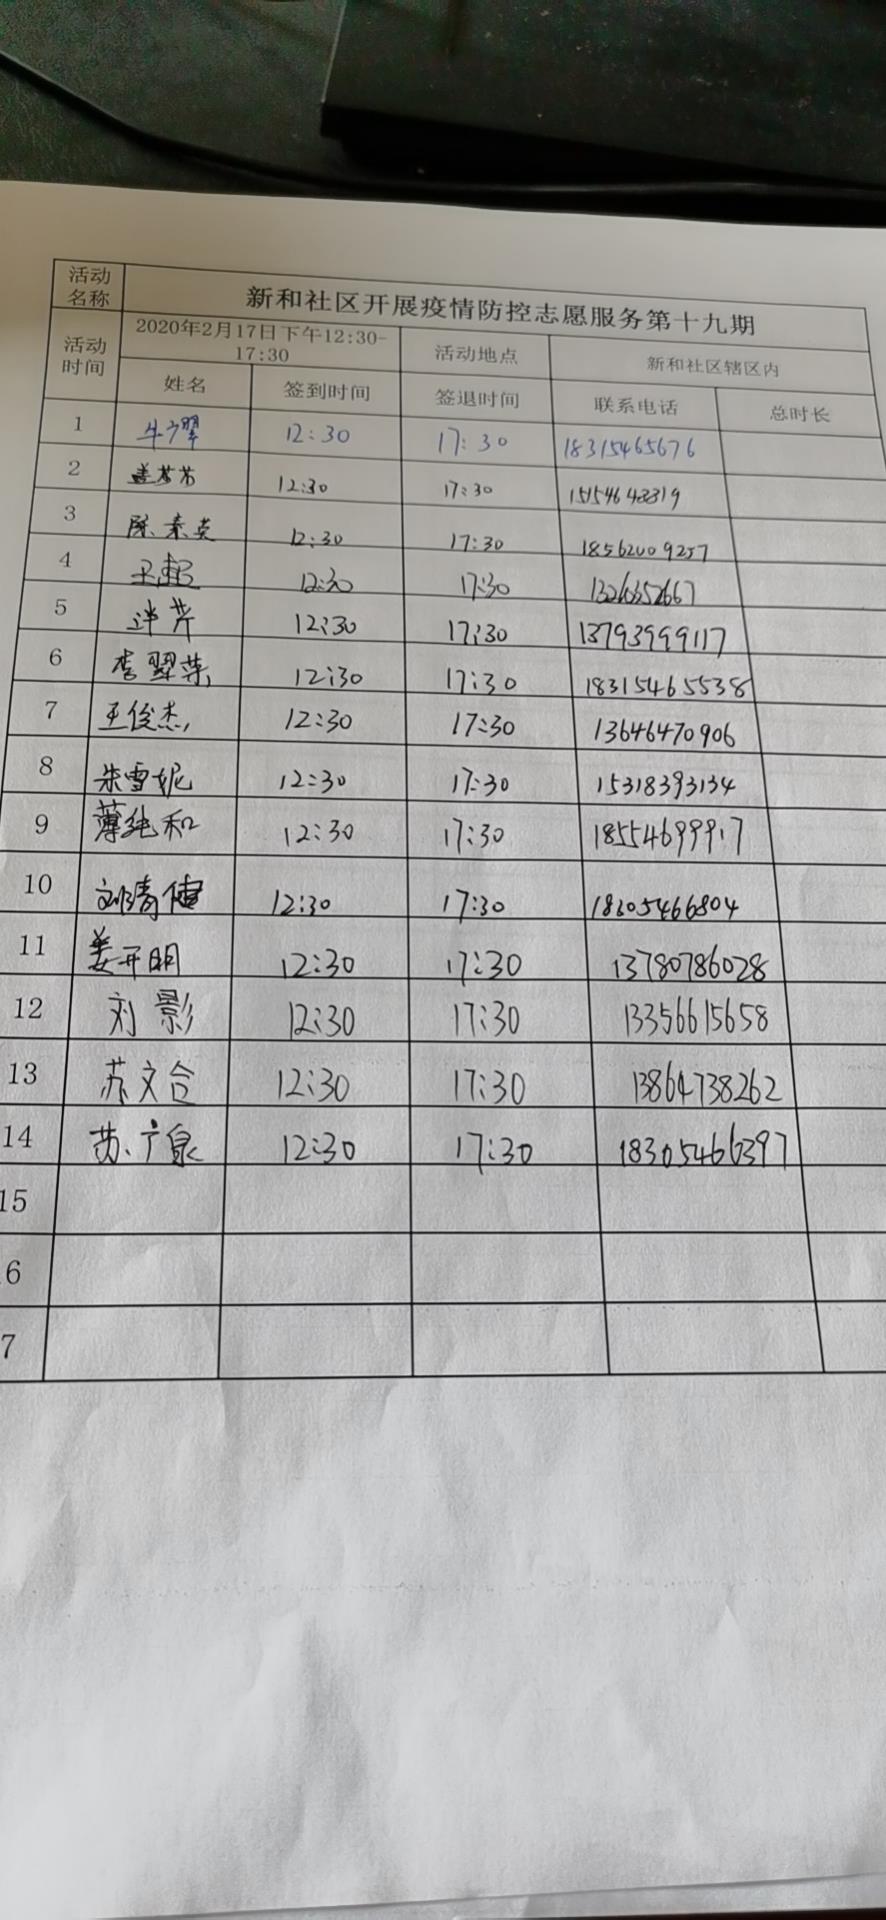 活动名称 新和社区开展疫情防控志愿服务第十九期
活动时间 2020年2月17日下午12:30-17:30 活动地点 新和社区辖区内
姓名 签到时间 签退时间 联系电话 总时长
1 12:30 17:30 18315465676
2 12:30 17:30
3 陈素英 12:30 17:30 18562009257
4 12:30 17:30
5 12:30 17:30 13793999117
6 李翠萍 12:30 17:30 18315465538
7 王俊杰 12:30 17:30 13646470906
8 朱雪妮 12:30 17:30 15318393134
9 薄纯和 12:30 17:30 18554699917
10 刘清健 12:30 17:30 18305466804
11 姜开明 12:30 17:30 13780786028
12 刘影 12:30 17:30 13356615658
13 苏文合 12:30 17:30 13864738262
14 苏广泉 12:30 17:30 18305466397
15
6
7